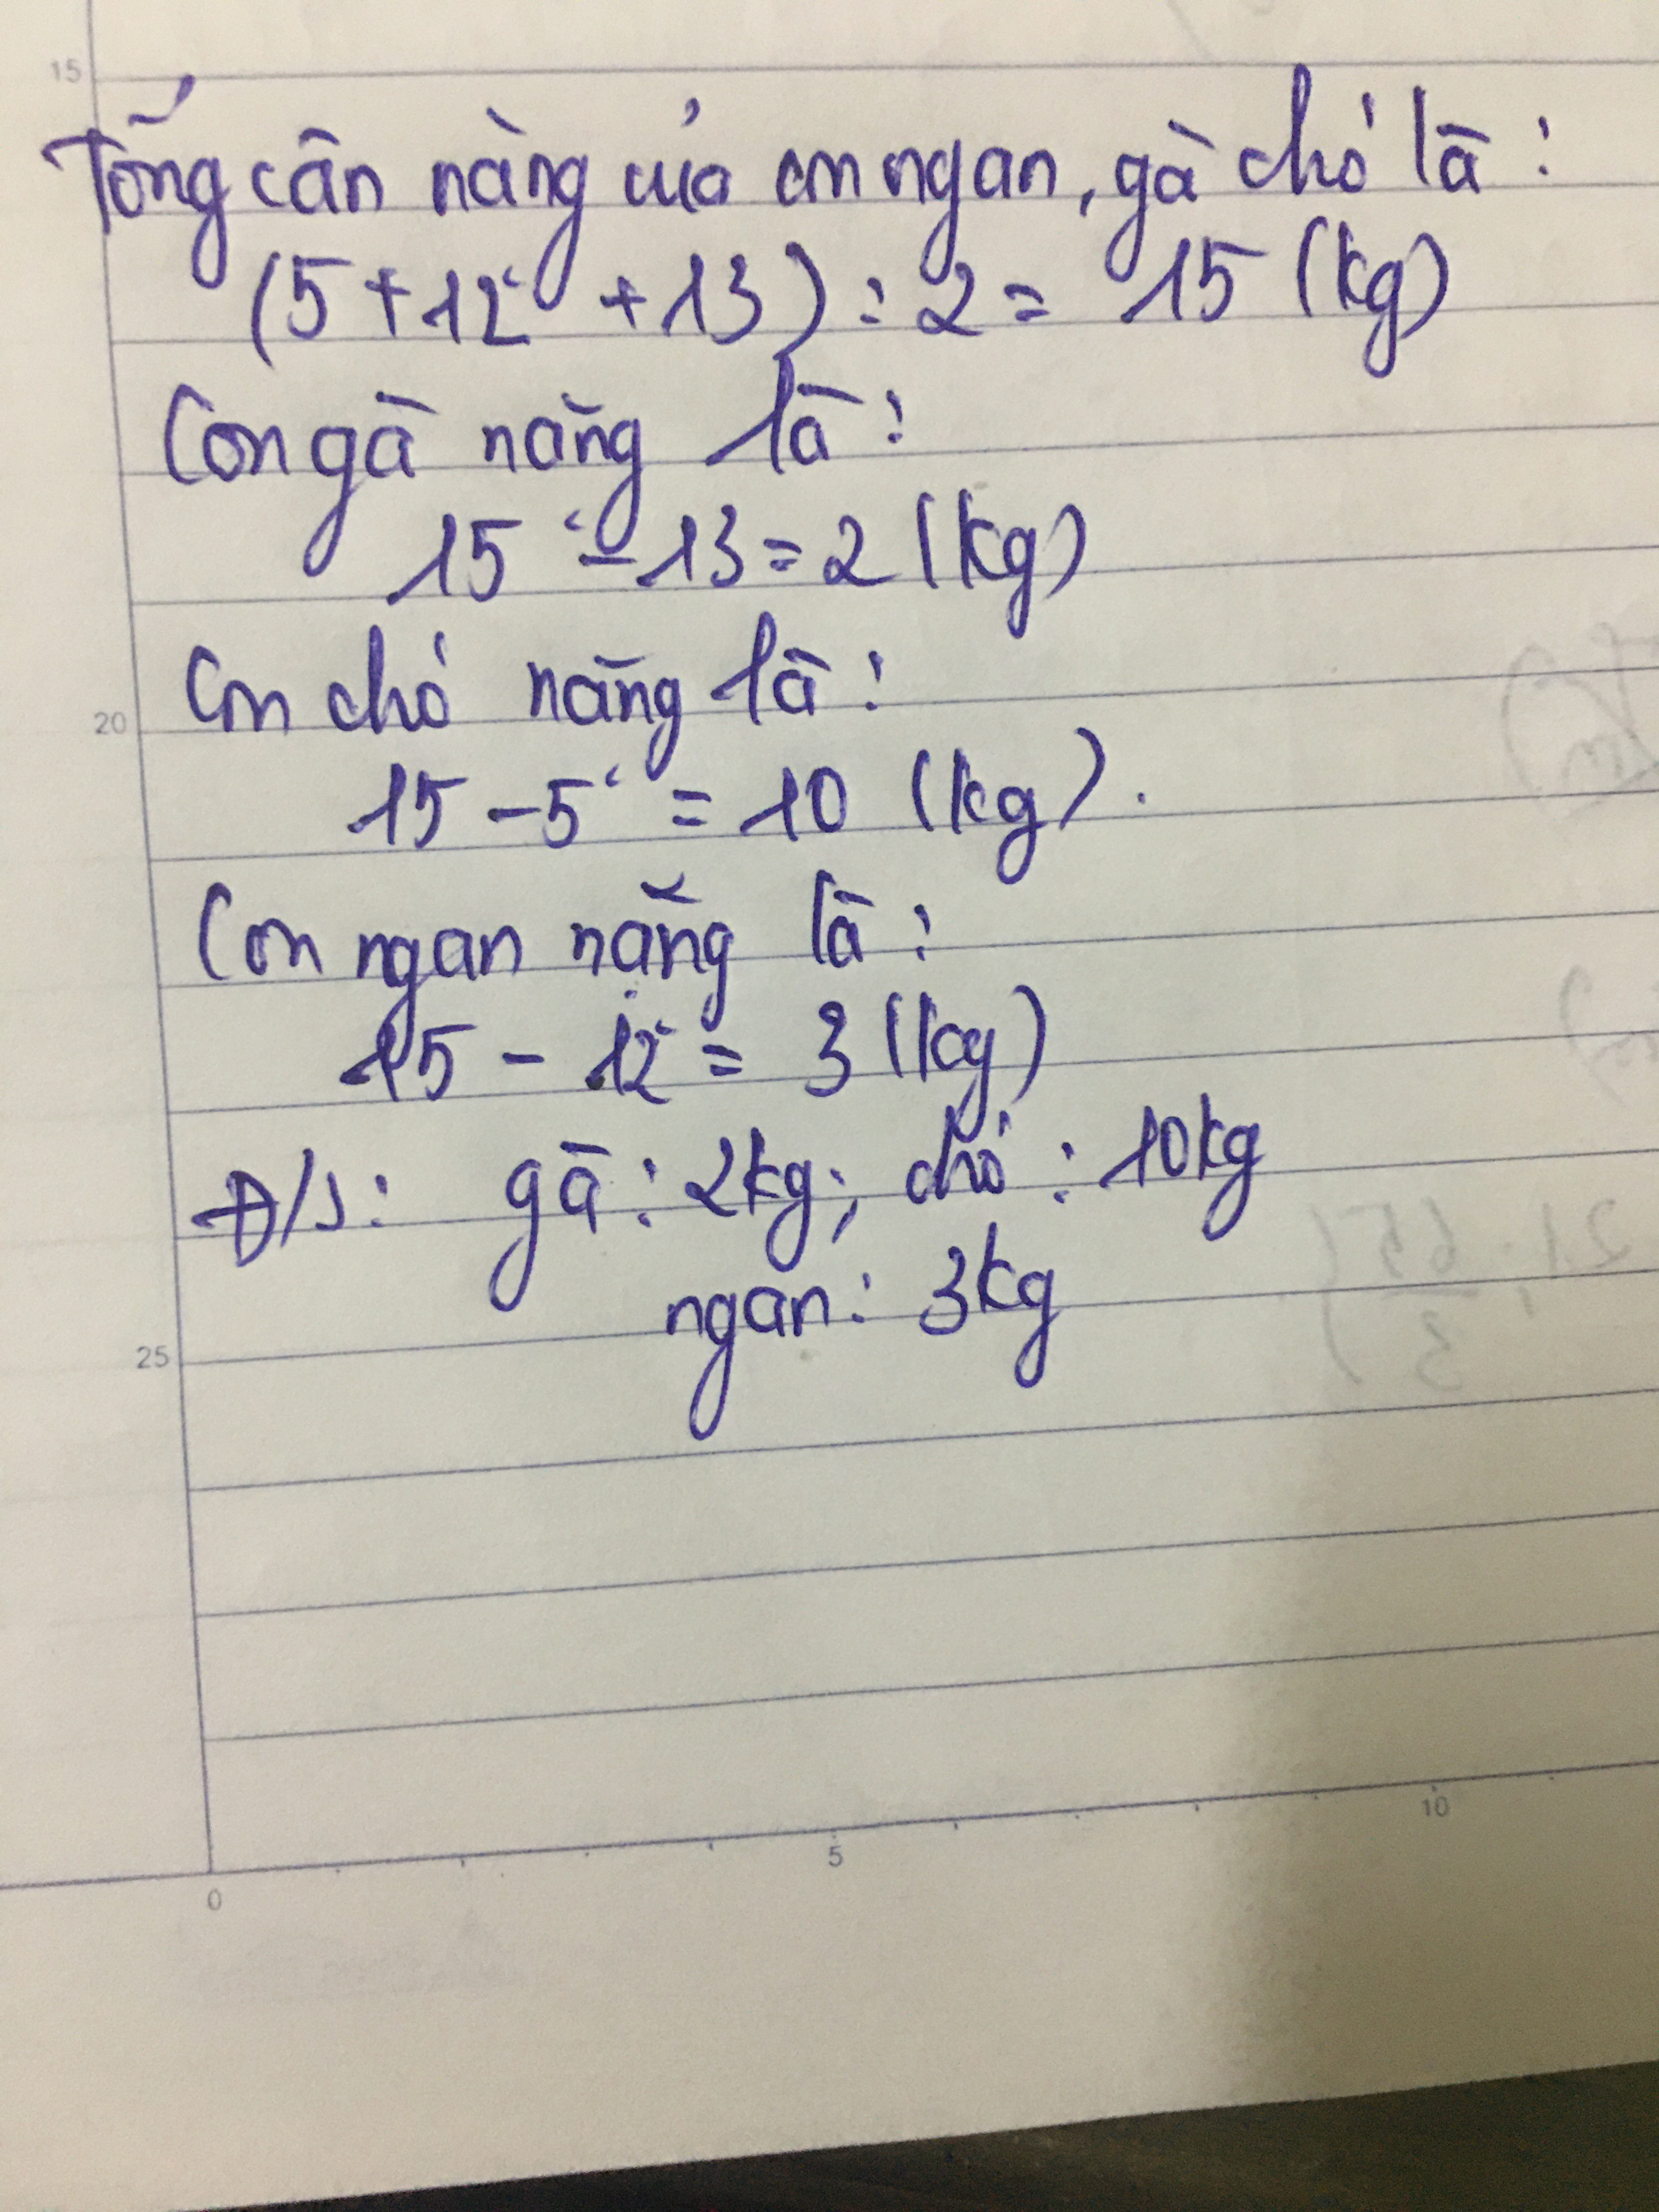 15
Tổng cân nặng của con ngan, gà chó là:
(5 + 12 + 13) : 2 = 15 (kg)
Con gà nặng là:
15 - 13 = 2 (kg)
Con chó nặng là:
20
15 - 5 = 10 (kg).
Con ngan nặng là:
15 - 12 = 3 (kg)
Đ/S: gà: 2kg; chó: 10kg
ngan: 3kg
25
0 5 10